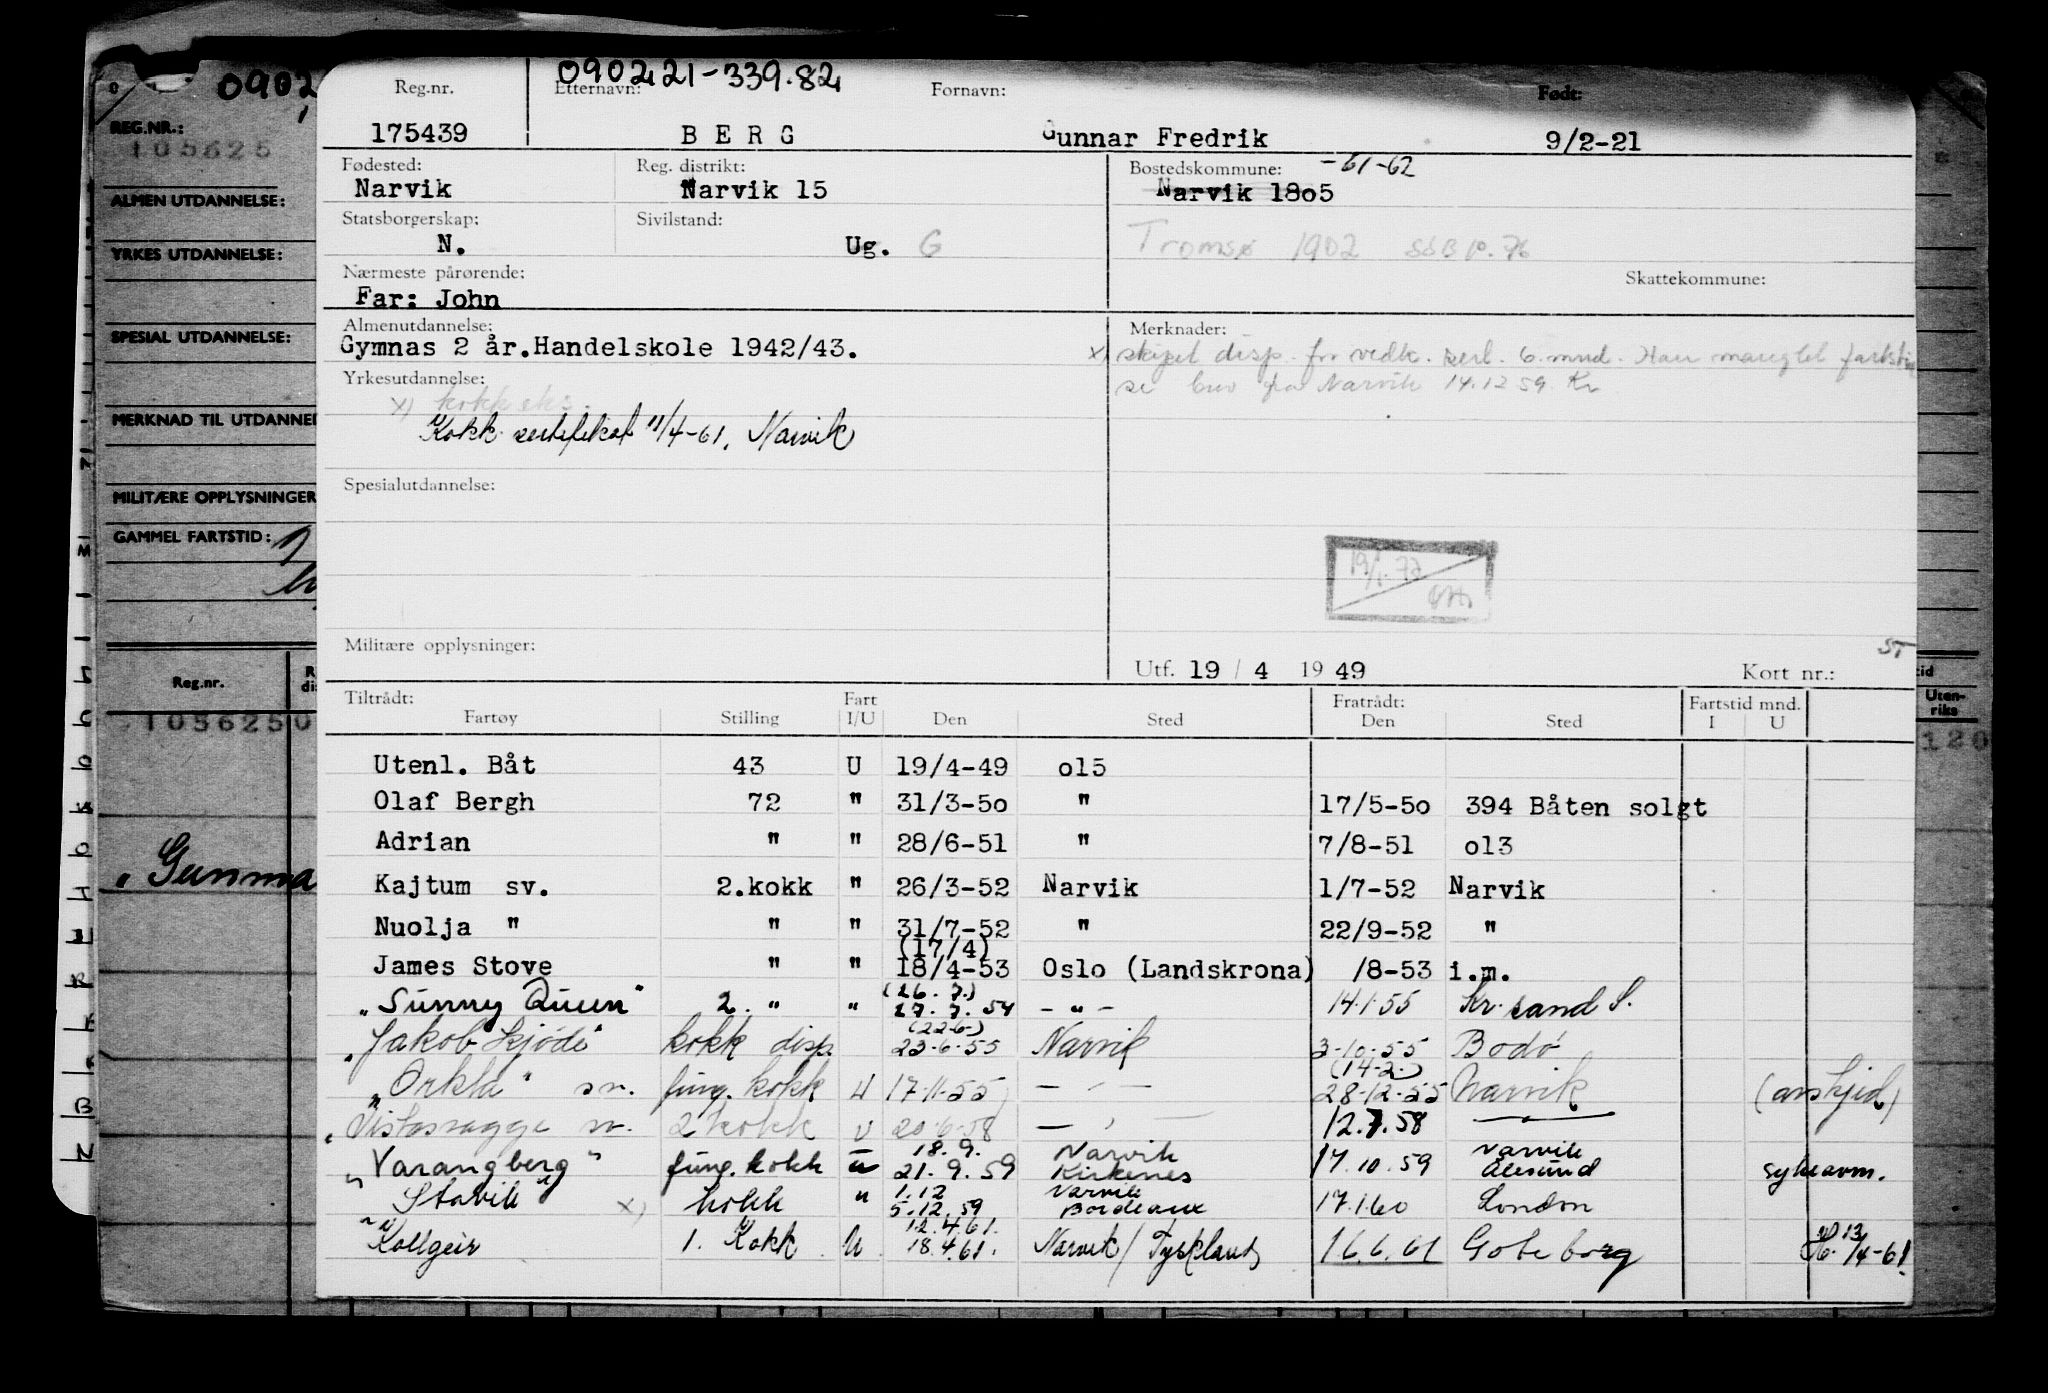 0902
090221-339.82
Reg.nr. Etternavn: Fornavn: Født:
175439 BERG Gunnar Fredrik 9/2-21
Fødested: Reg. distrikt: Bostedskommune: -61-62
Narvik Narvik 15 Narvik 18o5
Statsborgerskap: Sivilstand:
N. Ug. G Tromsø 1902 SSB 10.76
Nærmeste pårørende: Skattekommune:
Far: John
Almenutdannelse: Merknader:
Gymnas 2 år. Handelskole 1942/43. x) skipet disp. for vedk. sert. 6. mnd. Han manglet
Yrkesutdannelse: se brev fra Narvik 14.12 59. Kr
x) kokk eks.
Kokk. sertifikat 11/4-61, Narvik
Spesialutdannelse:
19/1.72
Militære opplysninger: ST
Utf. 19 / 4 19 49 Kort nr.:
Tiltrådt: Fart Fratrådt: Fartstid mnd.
Fartøy Stilling I/U Den Sted Den Sted I U
Utenl. Båt 43 U 19/4-49 ol5
Olaf Bergh 72 " 31/3-5o " 17/5-5o 394 Båten solgt
Adrian " " 28/6-51 " 7/8-51 ol3
Kajtum sv. 2.kokk " 26/3-52 Narvik 1/7-52 Narvik
Nuolja " " " 31/7-52 " 22/9-52 "
(17/4)
James Stove " " 18/4-53 Oslo (Landskrona) /8-53 i.m.
(26. 7.)
"Sunny Queen" 2. " " 27. 7. 54 - " - 14.1.55 Kr. sand S.
(22-6-)
"Jakob Kjöde" kokk disp. 23-6-55 Narvik 3-10-55 Bodø
(14-2.)
"Orkla" sv. fung. kokk U 17-11-55 - " - 28-12-55 Narvik (avskjed)
" Vistasvagge sv. 2 kokk U 20-6-58 - " - 12.7.58 - " -
18. 9. Narvik Narvik
"Varangberg" fung. kokk u 21. 9. 59 Kirkenes 17.10.59 Ålesund sykeavm.
1.12 Narvik
Stavik x) kokk " 5.12.59 Bordeaux 17.1.60 London
12.4.61. 13
"Kollgeir 1. Kokk U 18.4.61. Narvik / Tyskland 16.6.61 Gøteborg /4-61.
REG.NR.:
105625
ALMEN UTDANNELSE:
YRKES UTDANNELSE:
SPESIAL UTDANNELSE:
MERKNAD TIL UTDANNE
MILITÆRE OPPLYSNINGER
GAMMEL FARTSTID:
Reg.nr.
105625 0
"Gunna
tid
Uten-
riks
120